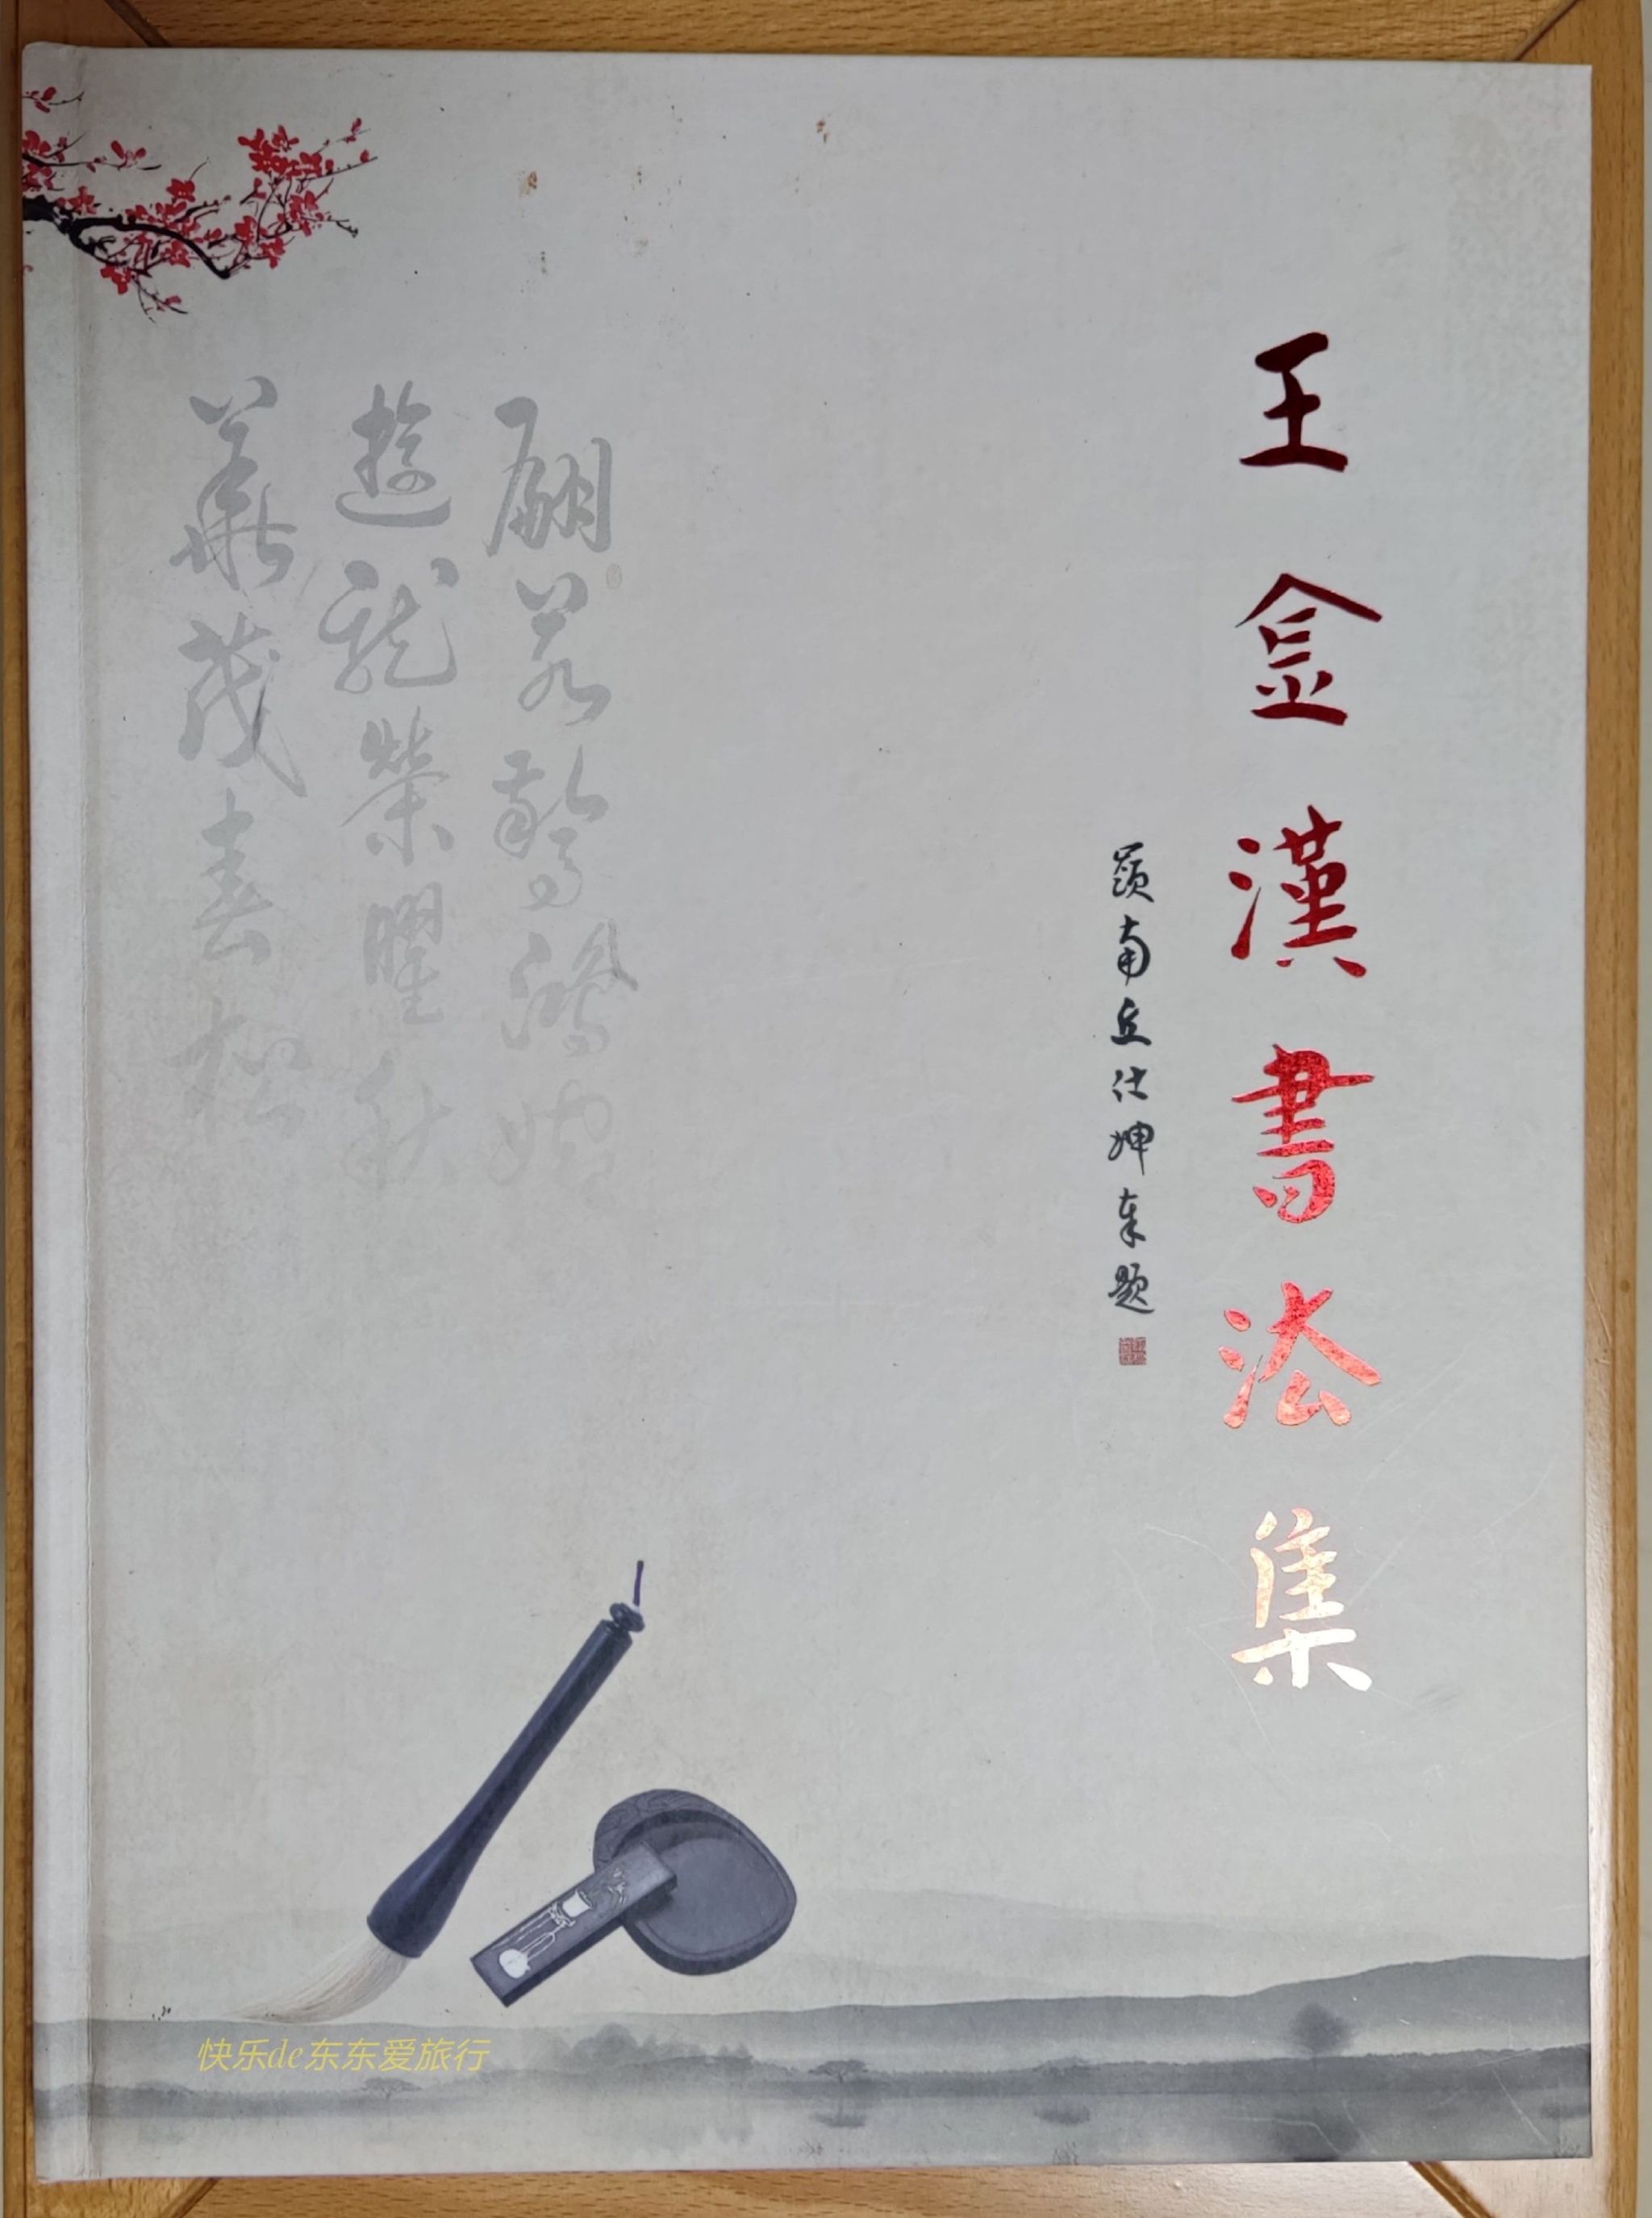 王金漢書法集
嶺南丘仕坤奉题
翩若驚鴻婉
遊龍榮曜秋
華茂春松
快乐de东东爱旅行